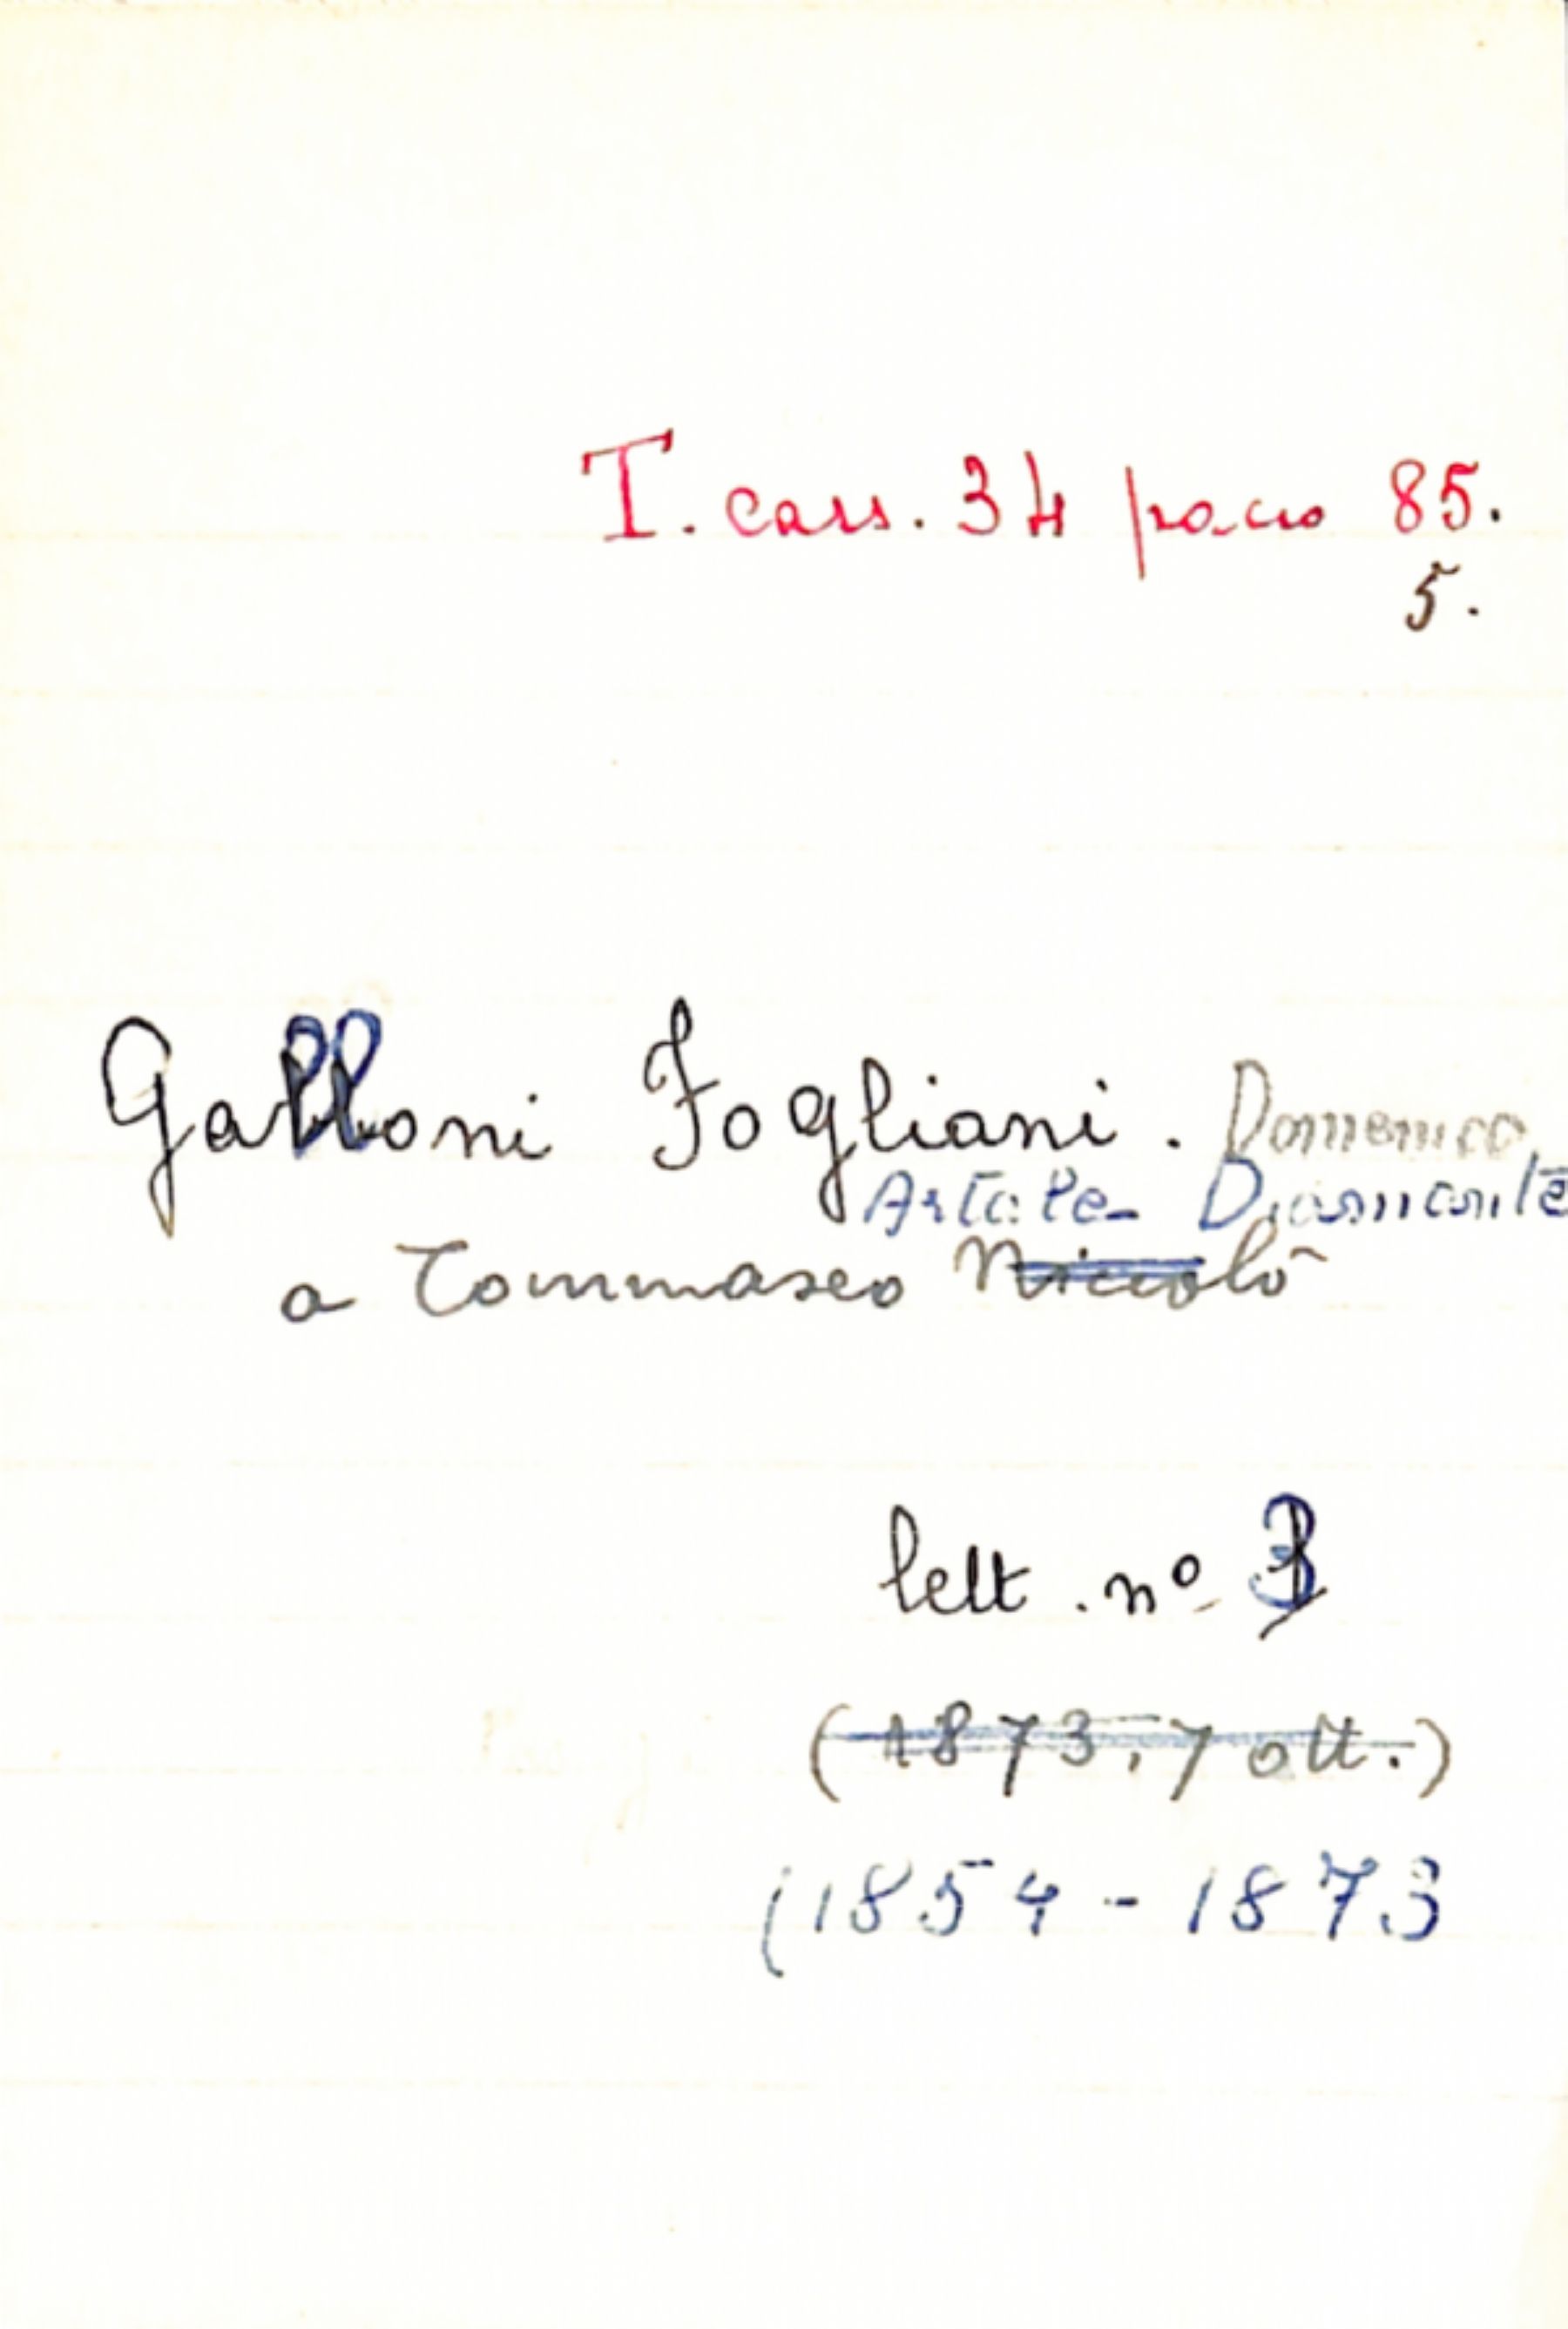 T. cass. 34 pacco 85.
5.
Galloni Fogliani. Domenico
Artale- Diamante
a Tommaseo Niccolò
lett. nº 3
(1873, 7 ott.)
(1854-1873